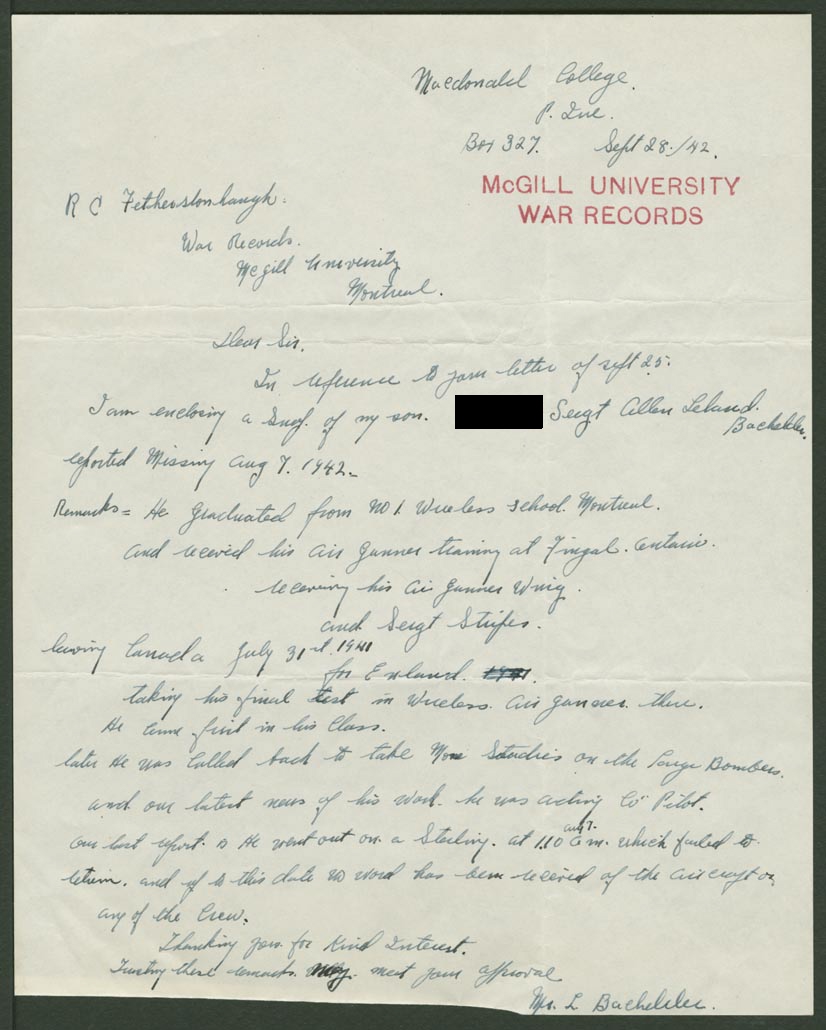 Macdonald College.
P. Que.
Box 327. Sept 28./42.
McGILL UNIVERSITY
WAR RECORDS
R C Fetherstonhaugh.
War Records.
Mcgill University
Montreal.
Dear Sir.
In reference to your letter of sept 25.
I am enclosing a Snap. of my son. Sergt Allen Leland.
Bachelder.
reported Missing Aug 7. 1942.
Remarks = He Graduated from No 1. Wireless School. Montreal.
and received his Air Gunner training at Fingal. Ontario.
receiving his Air Gunner Wing.
and Sergt Stripes.
leaving Canada July 31st. 1941
for England.
taking his final test in Wireless. Air Gunner. there.
He came first in his Class.
later He was Called back to take More Studies on the Large Bombers.
and our latest news of his work. he was acting Co Pilot.
our last report. is He went out on a Sterling. at 1.10 a.m. Aug 7. which failed to
return. and up to this date no word has been received of the aircraft or
any of the Crew.
Thanking you. for Kind Interest.
Trusting these remarks. may. meet your approval
Mrs. L Bachelder.